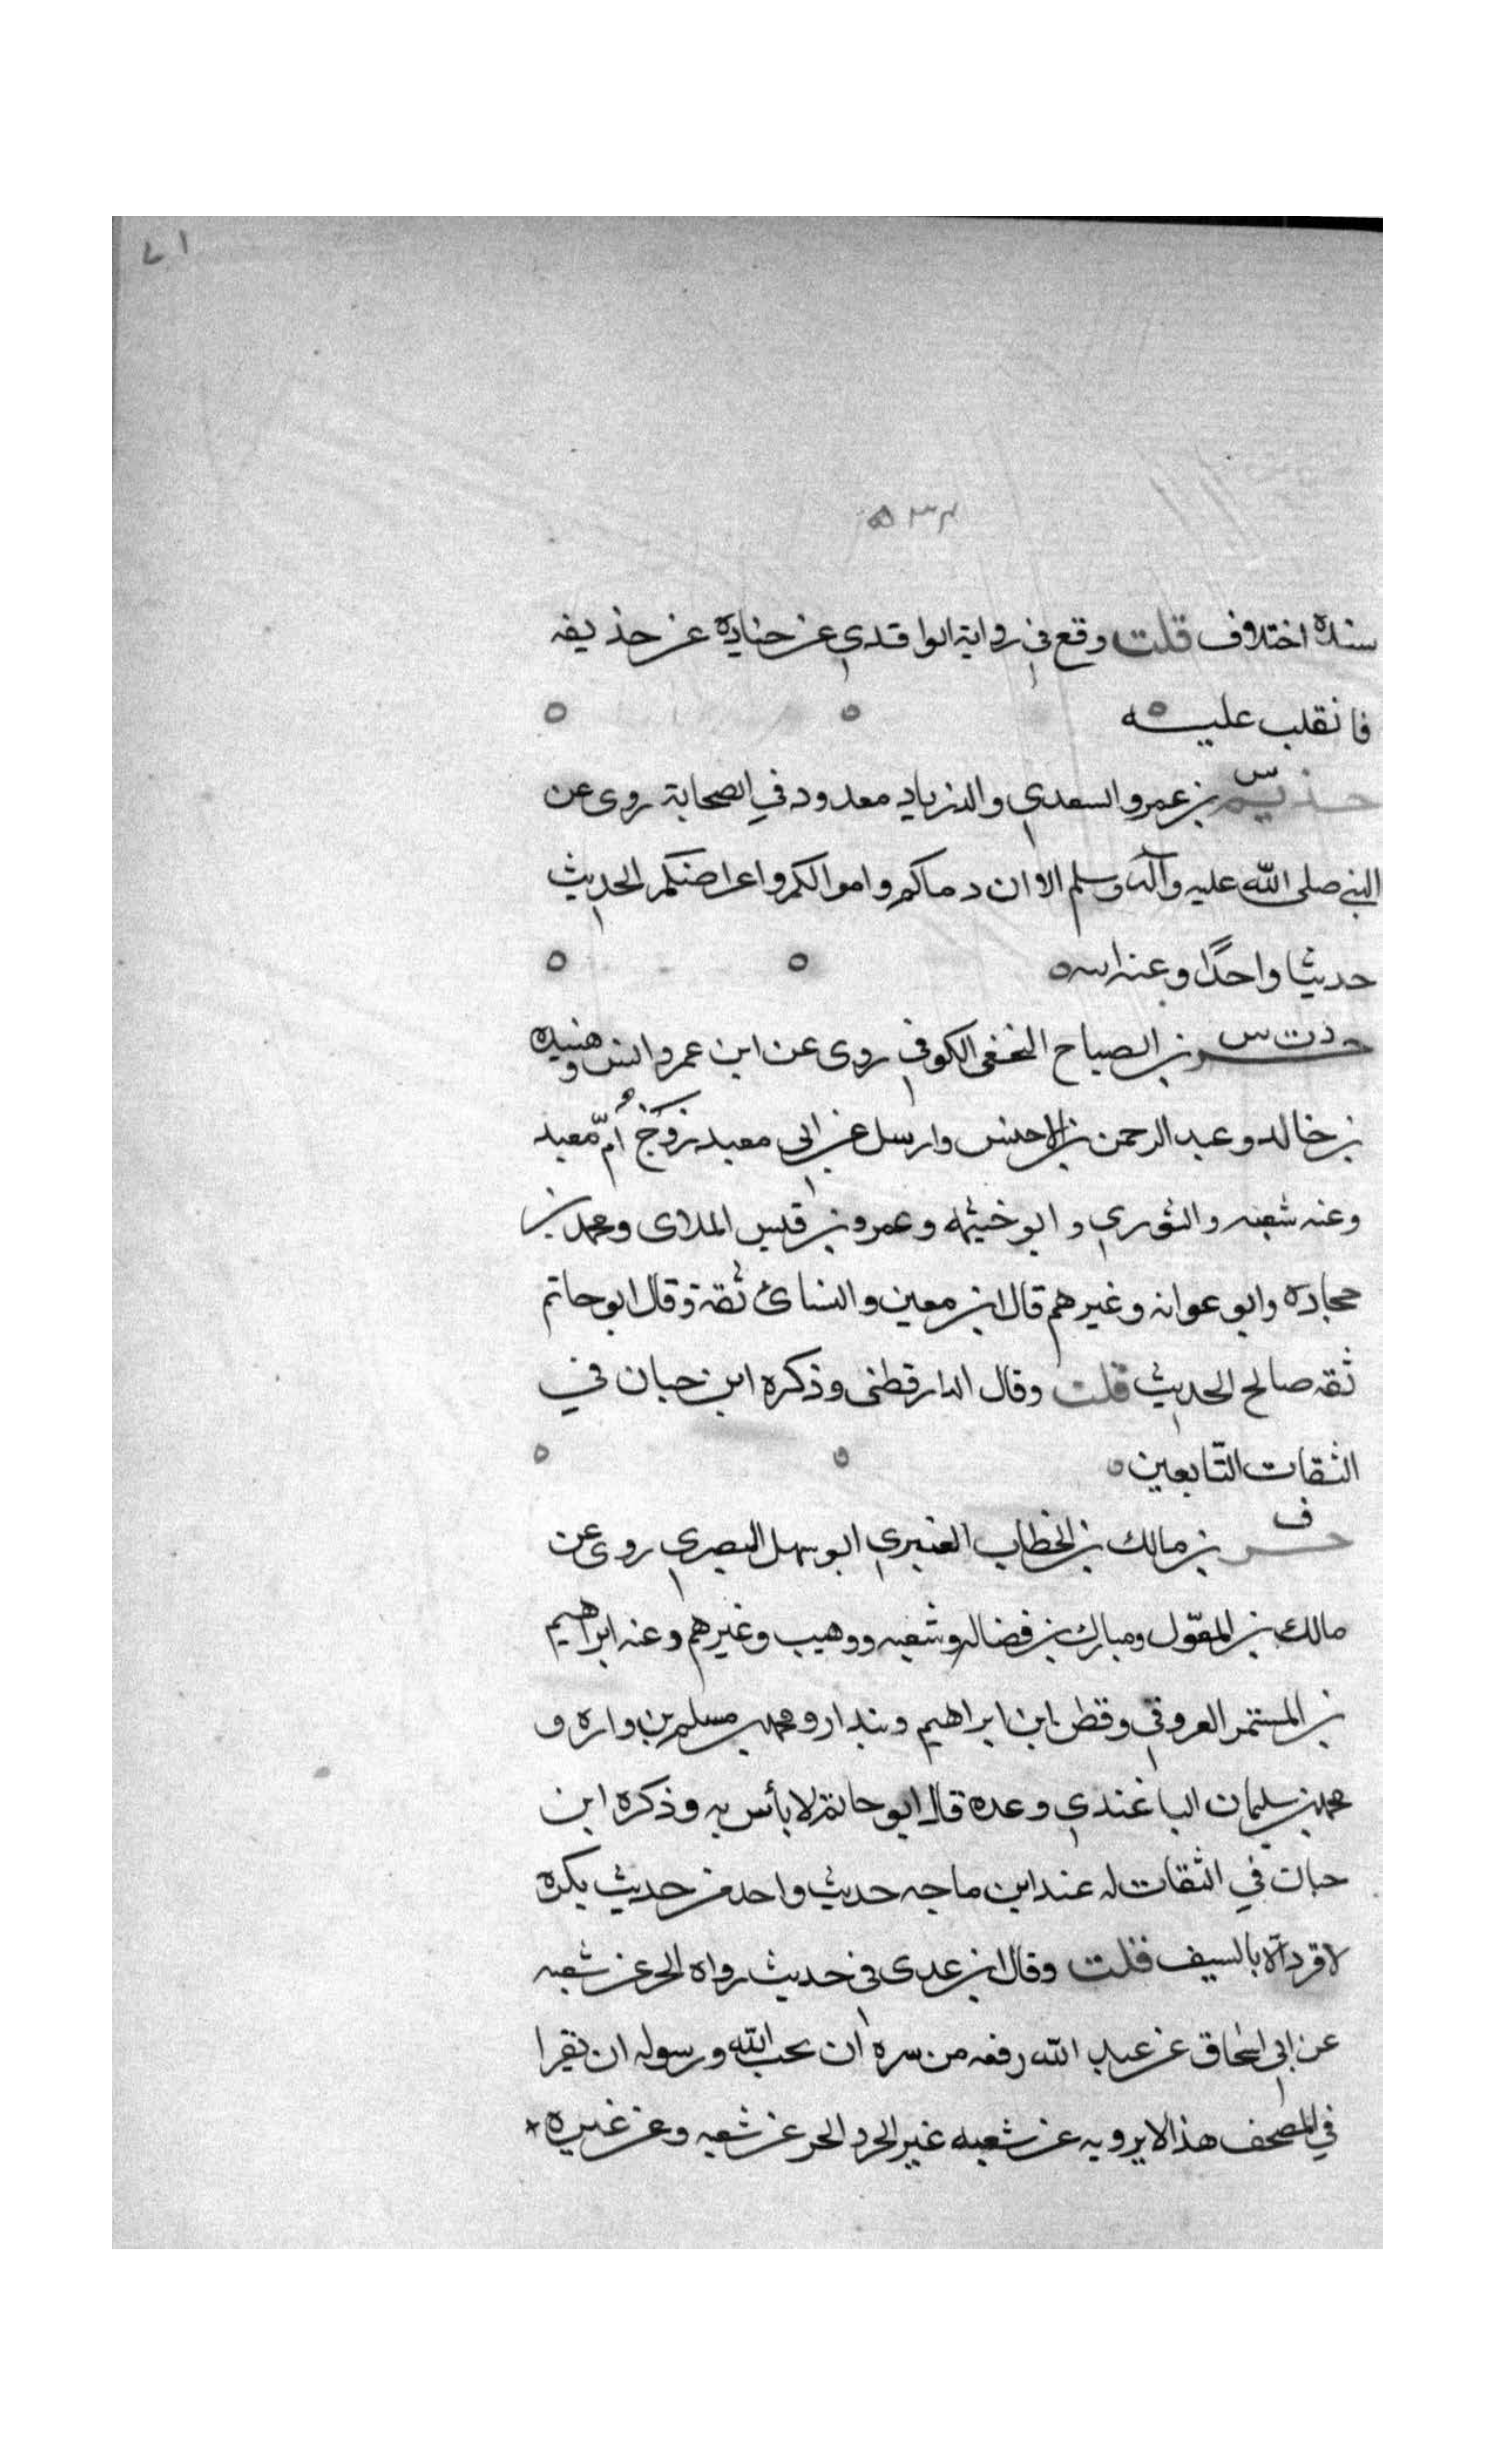 ٧١
٥٣٢
سنده اختلاف قلت وقع في رواية الواقدي عن جناده عن حذيفه
فانقلب عليه
س
حذيم بن عمرو السعدي والد زياد معدود في الصحابة روى عن
النبي صلى الله عليه وآله وسلم الا وان دماكم واموالكم واعراضكم الحديث
حديثا واحدًا وعنه ابنه
د ت س
حر بن الصياح النخعي الكوفي روى عن ابن عمر وانس وهنيده
بن خالد وعبد الرحمن بن الاخنس وارسل عن ابي معبد زوج أمّ معبد
وعنه شعبه والثوري وابو خيثمه وعمرو بن قيس الملاى ومحمد بن
حجاده وابو عوانه وغيرهم قال ابن معين والنسائ ثقة وقال ابو حاتم
ثقه صالح الحديث قلت وقال الدارقطنى وذكره ابن حبان في
الثقات التّابعين
ف
حر بن مالك بن الخطاب العنبري ابو سهل البصري روى عن
مالك بن المغوّل ومبارك بن فضاله وشعبه ووهيب وغيرهم وعنه ابراهيم
بن المستمر العروقي وقطن ابن ابراهيم وبندار ومحمد بن مسلم بن واره و
محمد بن سليمان الباغندي وعده قال ابو حاتم لا بأس به وذكره ابن
حبان في الثقات له عند ابن ماجه حديث واحد من حديث بكره
لا قود الا بالسيف قلت وقال ابن عدى في حديث رواه الحر عن شعبه
عن ابي اسحاق عن عبد الله رفعه من سره ان يحب الله ورسوله ان يقرا
في المصحف هذا لا يرويه عن شعبه غير الحر و الحر عن شعبه وعن غيره